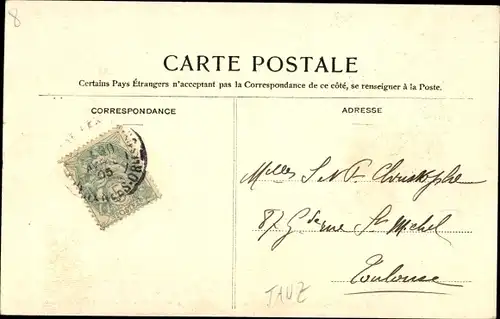 8
CARTE POSTALE
Certains Pays Étrangers n'acceptant pas la Correspondance de ce côté, se renseigner à la Poste.
CORRESPONDANCE
ADRESSE
05
Melles S et P. Christophe
87 Gde rue St Michel
Toulouse
TAUZ